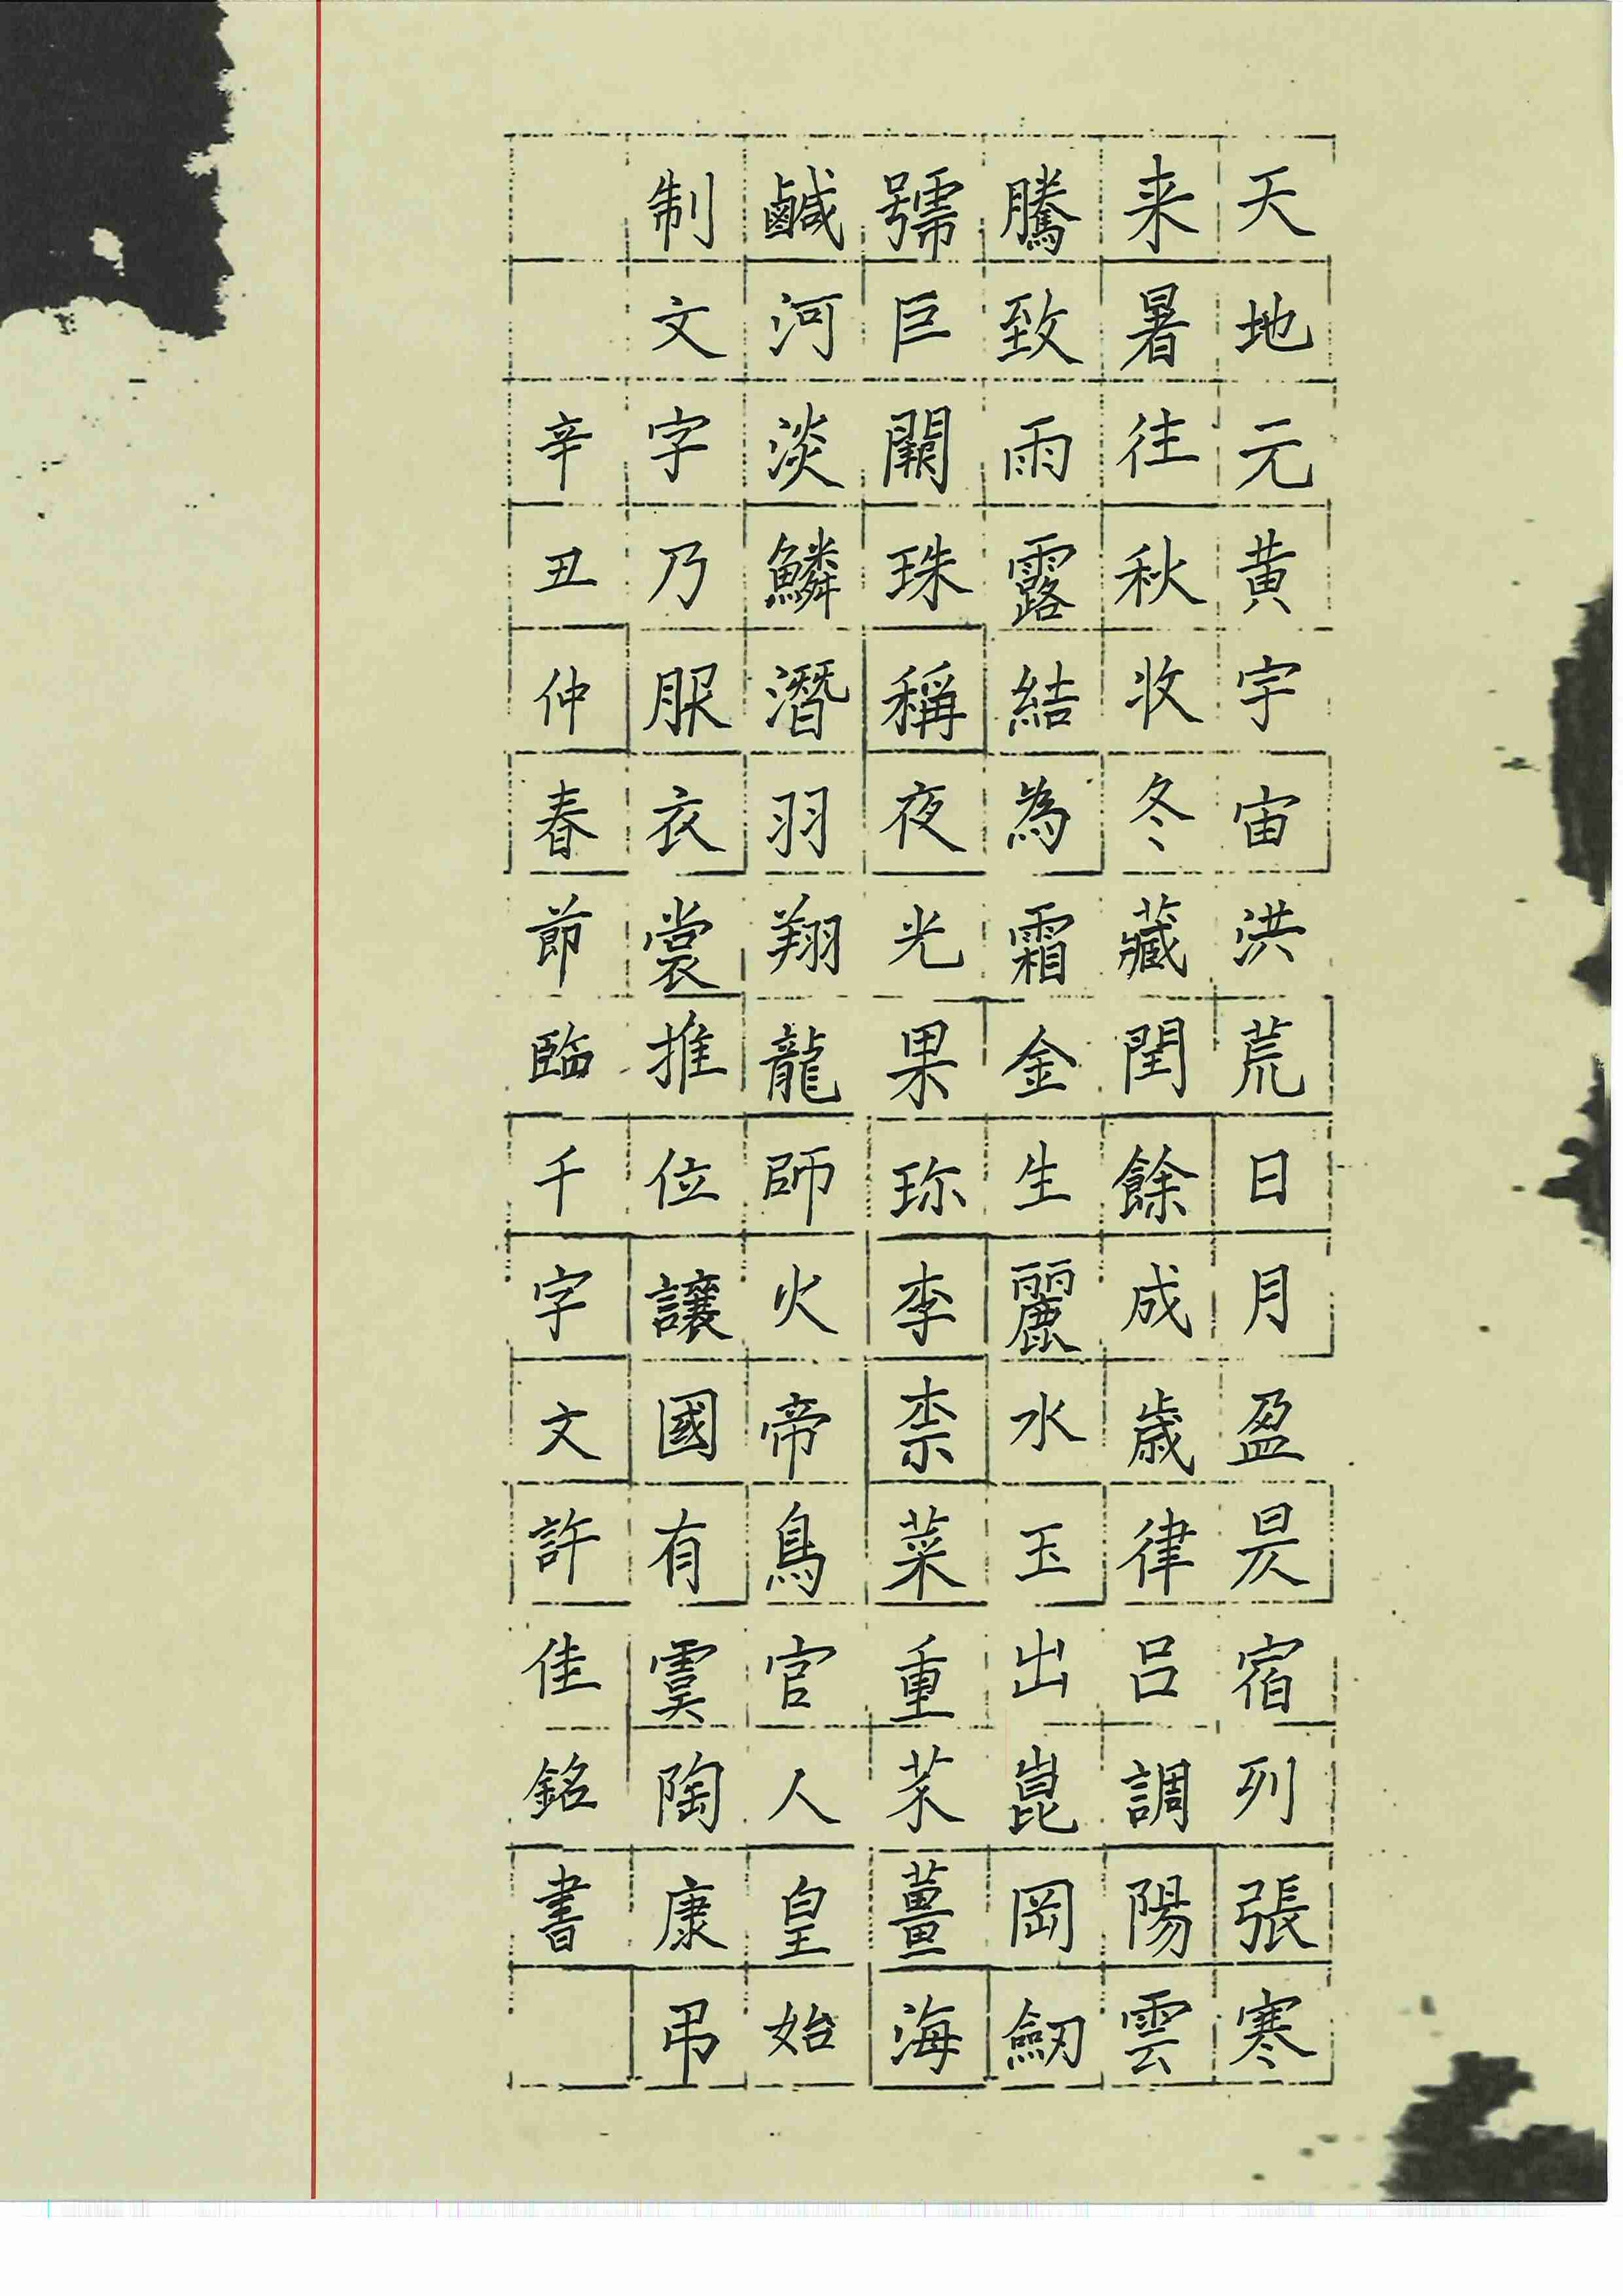 天地元黄宇宙洪荒日月盈昃宿列張寒
来暑往秋收冬藏閏餘成歳律吕調陽雲
騰致雨露結為霜金生麗水玉出崑岡劒
號巨闕珠稱夜光果珎李柰菜重芥薑海
鹹河淡鱗潛羽翔龍師火帝鳥官人皇始
制文字乃服衣裳推位讓國有虞陶康弔
辛丑仲春節臨千字文許佳銘書